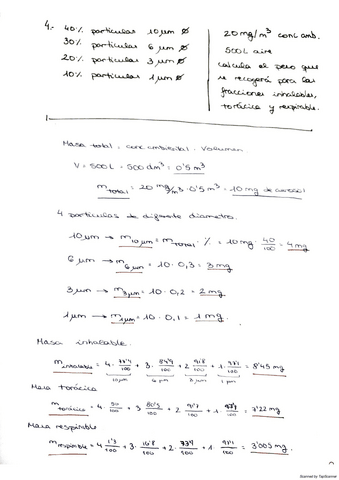 4.- 40% partículas 10 μm ø
30% partículas 6 μm ø
20% partículas 3 μm ø
10% partículas 1 μm ø
20 mg/m³ conc amb.
500 L aire
calcula el peso que
se recogerá para las
fracciones inhalables,
torácica y respirable.
Masa total = conc ambiental · Volumen
V = 500 L = 500 dm³ = 0'5 m³
m total = 20 mg/m³ · 0'5 m³ = 10 mg de aerosol
4 partículas de diferente diametro.
10 μm → m 10 μm = m total · % = 10 mg · 40/100 = 4 mg
6 μm → m 6 μm = 10 · 0,3 = 3 mg
3 μm → m 3 μm = 10 · 0,2 = 2 mg
1 μm → m 1 μm = 10 · 0,1 = 1 mg.
Masa inhalable.
m inhalable = 4 · /100 + 3 · /100 + 2 · /100 + 1 · /100 = 8'45 mg
10 μm 6 μm 3 μm 1 μm
Masa torácica
m torácica = 4 · 50/100 + 3 /100 + 2 /100 + 1 · /100 = 7'22 mg
Masa respirable
m respirable = 4 · 1'3/100 + 3 · 16'8/100 + 2 · /100 + 1 · /100 = 3'005 mg
Scanned by TapScanner